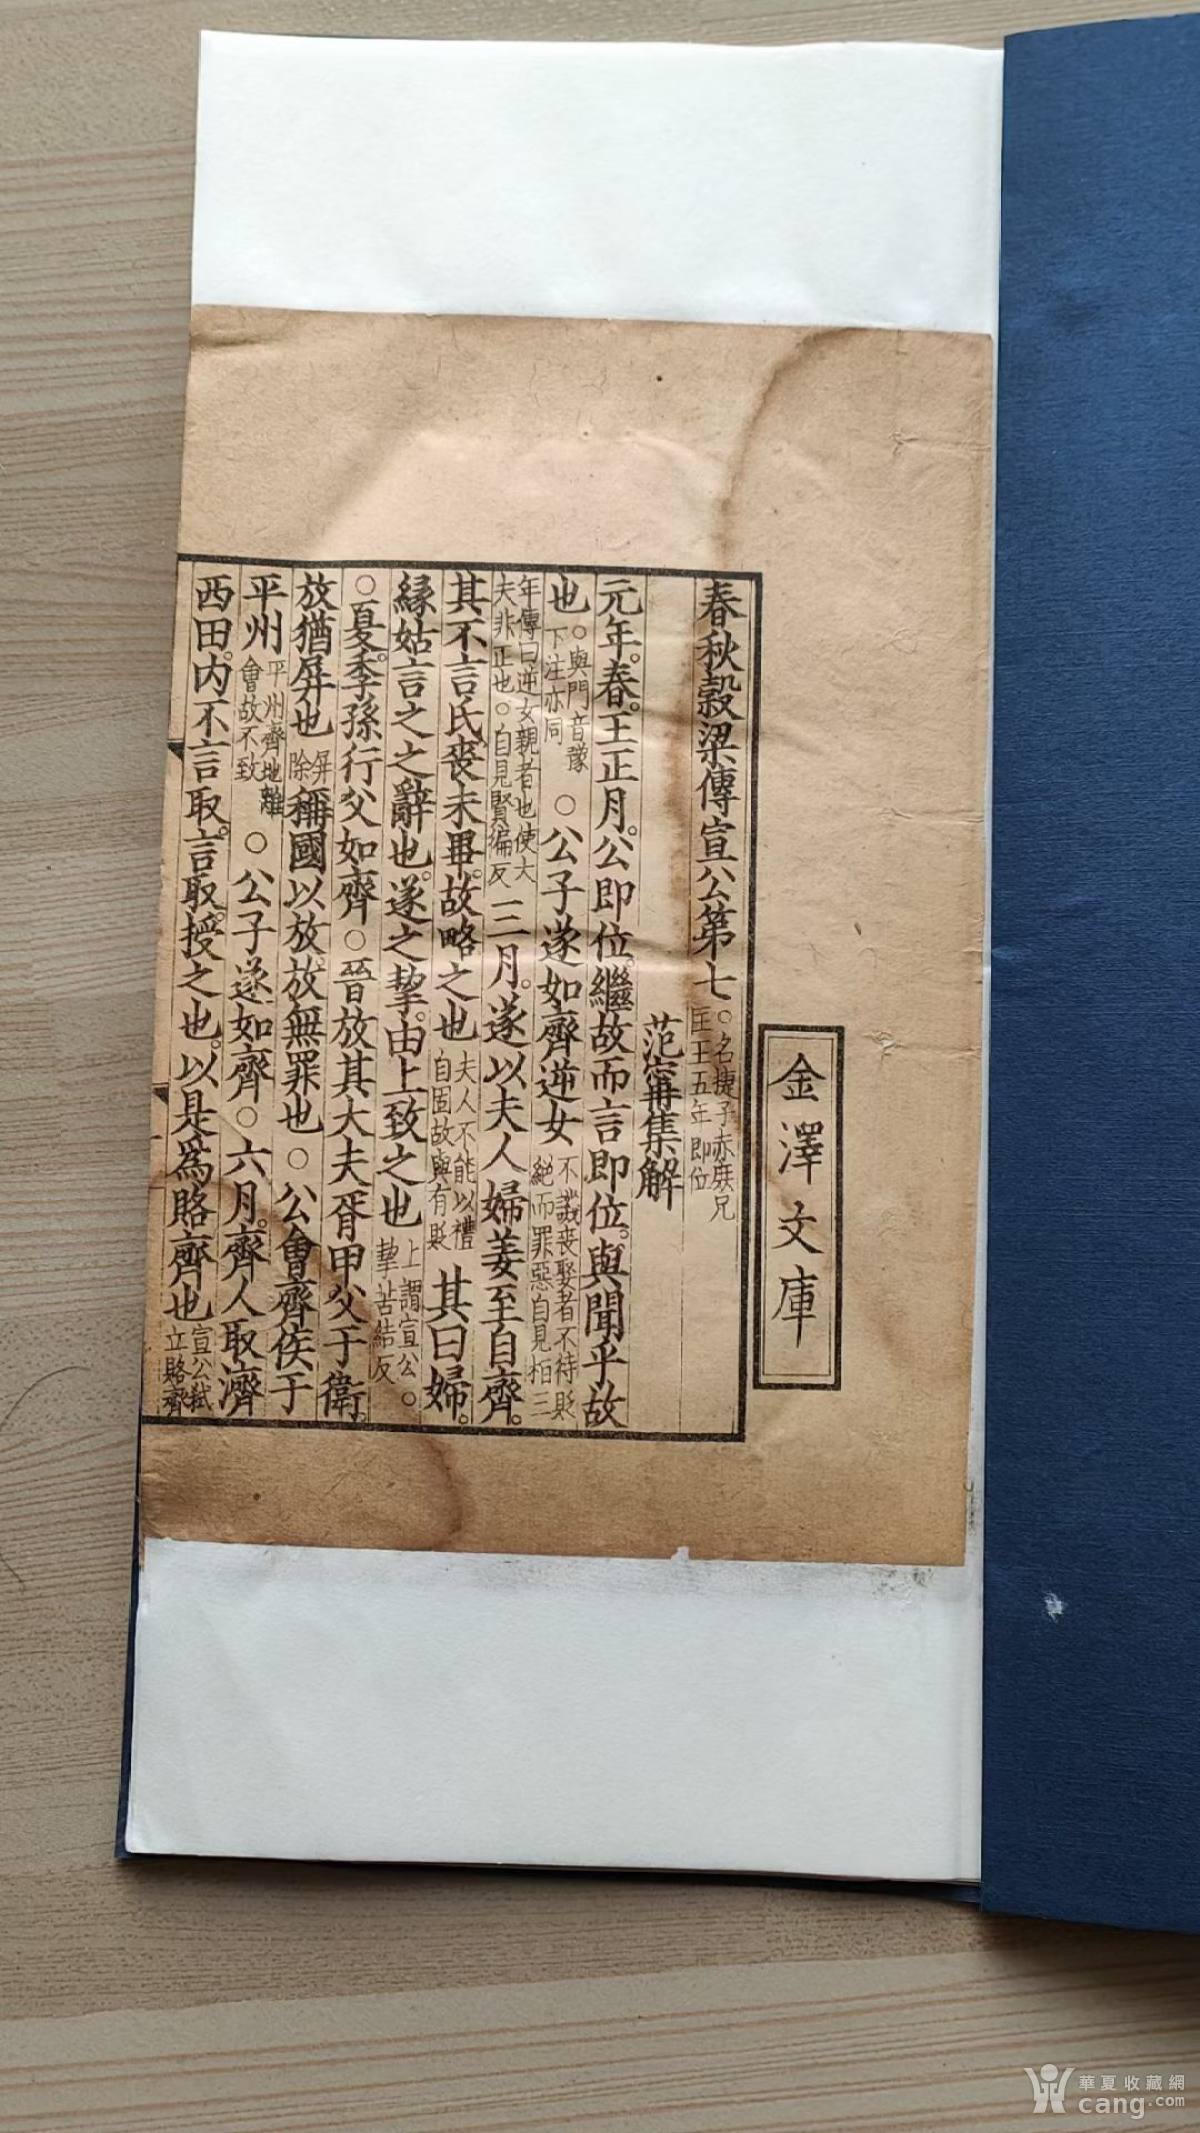 金澤文庫
春秋穀梁傳宣公第七○名捷子赤庶兄匡王五年即位
范甯集解
元年。春。王正月。公即位。繼故而言即位。與聞乎故
也○與門音豫下注亦同○公子遂如齊逆女不譏喪娶者不待貶絶而罪惡自見桓三
年傳曰逆女親者也使大夫非正也○自見賢徧反三月。遂以夫人婦姜至自齊。
其不言氏。喪未畢。故略之也夫人不能以禮自固故與有貶其曰婦。
緣姑言之之辭也。遂之挈。由上致之也上謂宣公○挈苦結反
○夏。季孫行父如齊○晉放其大夫胥甲父于衛。
放猶屏也屏除稱國以放。放無罪也○公會齊侯于
平州平州齊地離會故不致○公子遂如齊○六月。齊人取濟
西田。内不言取。言取。授之也。以是爲賂齊也宣公弒立賂齊
華夏收藏網
cang.com